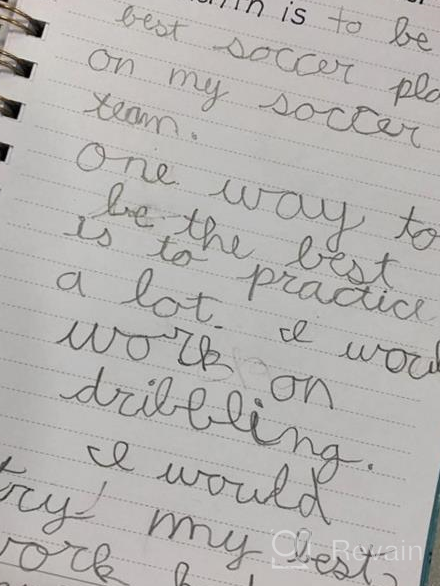 is to be
best soccer
on my soccer
team.
One way to
be the best
is to practice
a lot. I
work on
dribbling.
I would
try my best
work
Revain